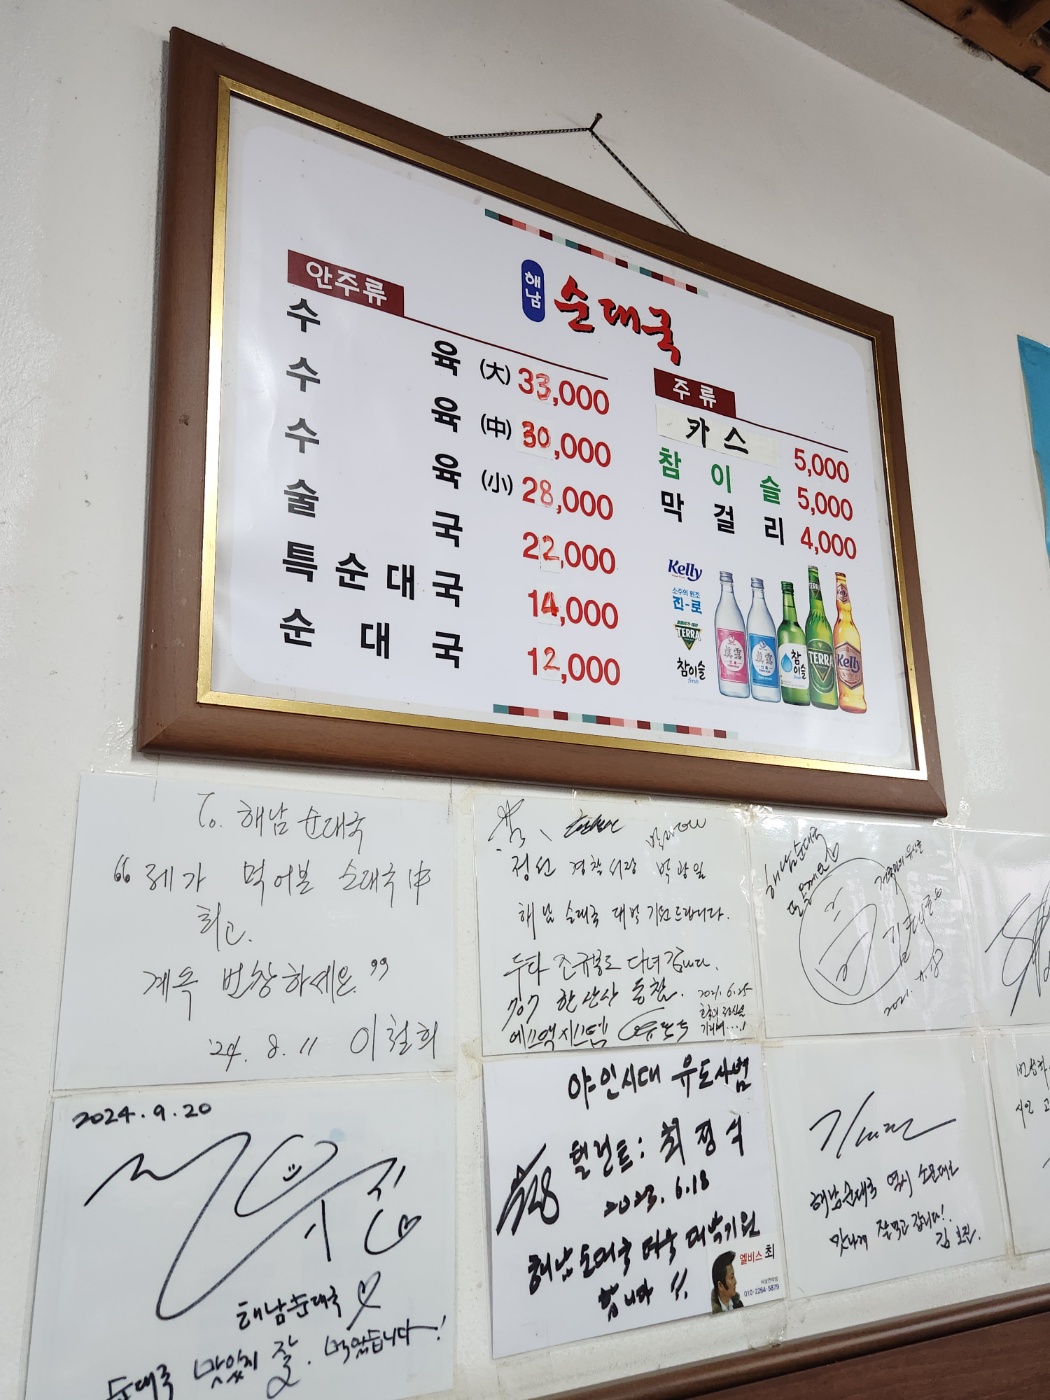 해남 순대국
안주류
수 육 (大) 33,000
수 육 (中) 30,000
수 육 (小) 28,000
술 국 22,000
특순대국 14,000
순 대 국 12,000
주 류
카 스 5,000
참 이 슬 5,000
막 걸 리 4,000
Kelly
소주의 원조
진-로
TERRA
참이슬
fresh
眞露
眞露
참이슬
TERRA
Kelly
To. 해남 순대국
“제가 먹어본 순대국中
최고.
계속 번창하세요.”
'24. 8. 11 이철희
정선 경찰서장
해남 순대국 대박 기원드립니다.
두타 조규봉도 다녀갑니다.
707 한산사
2021. 6. 25
에스액시스템
해남순대국
2021.
2024. 9. 20
해남순대국
순대국 맛있게 잘. 먹었습니다!
야인시대 유도사범
탤런트: 최정식
2023. 6. 18
해남순대국 대박기원
합니다 !!
엘비스 최
010-2264-5879
해남순대국 역시 소문대로
맛나게 잘먹고 갑니다!.